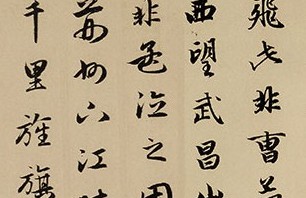 飛此非曹孟
東望武昌山
非孟德之困
荊州下江陵
千里旌旗